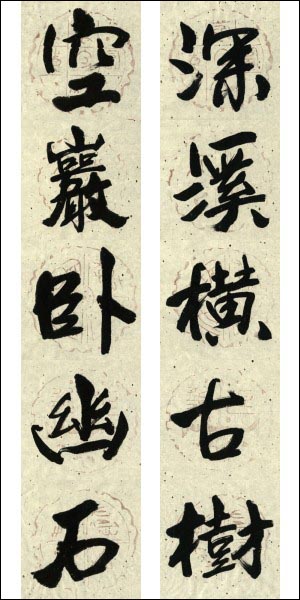 深溪橫古樹
空巖卧幽石